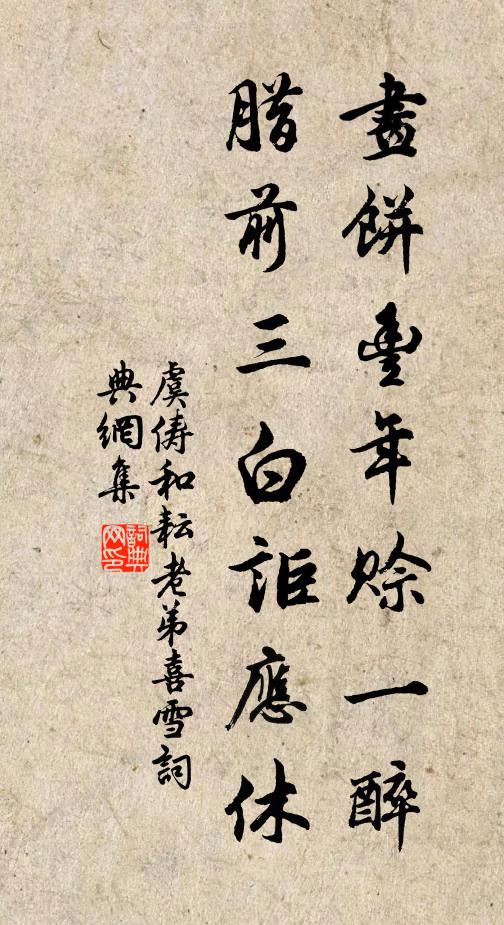 畫餅豐年賒一醉
腊前三白詎應休
虞俦和耘老弟喜雪詞
典網集
詞典
网印